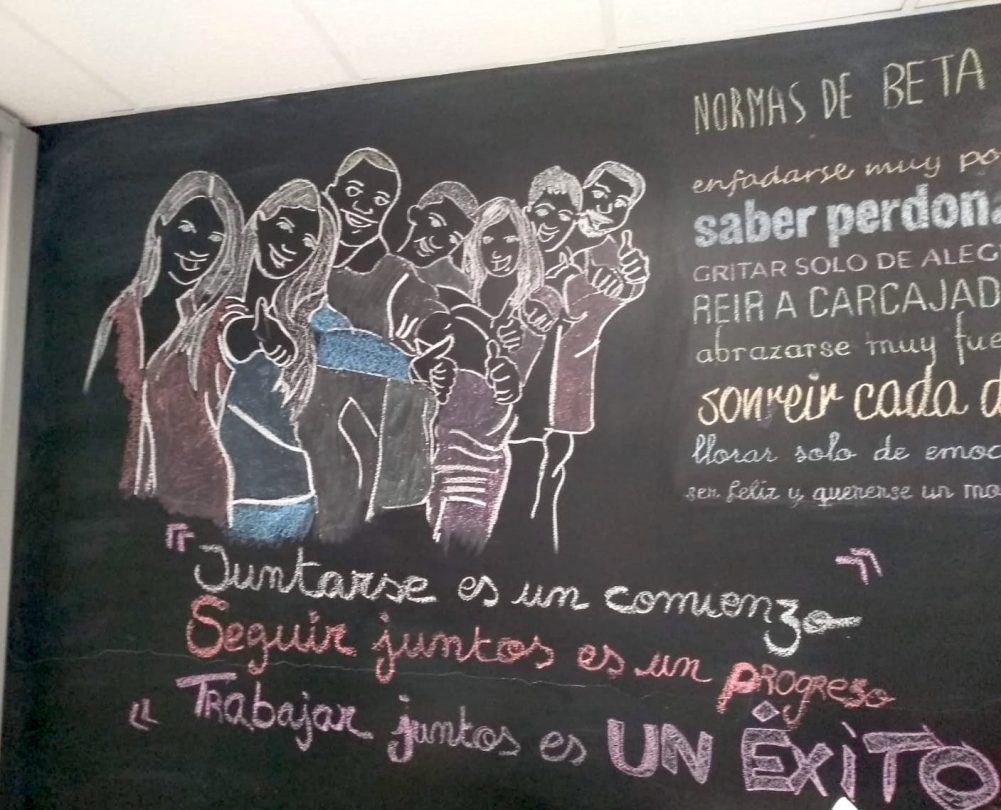 NORMAS DE BETA
enfadarse muy po
saber perdona
GRITAR SOLO DE ALEG
REIR A CARCAJAD
abrazarse muy fue
sonreir cada d
llorar solo de emoc
ser feliz y quererse un mo
"Juntarse es un comienzo
Seguir juntos es un PROGRESO
Trabajar juntos es UN ÉXITO